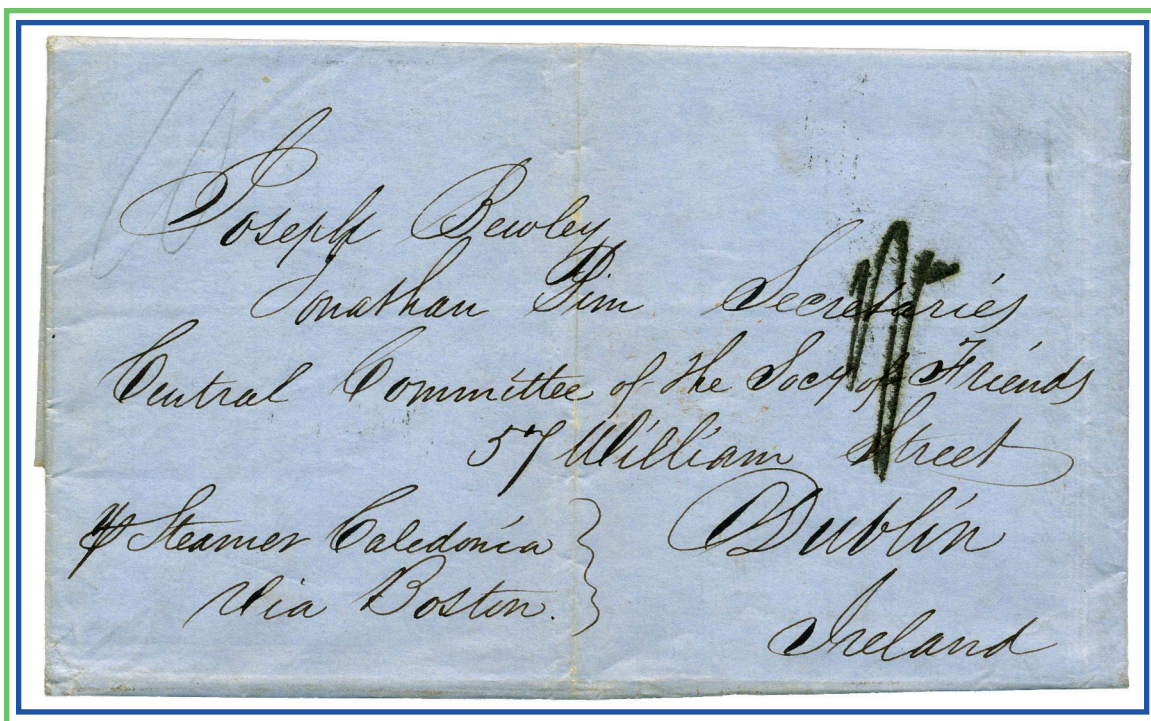 10
Joseph Bewley
Jonathan Pim Secretaries
Central Committee of the Socy of Friends
57 William Street
Dublin
Ireland
⅌ Steamer Caledonia
Via Boston.